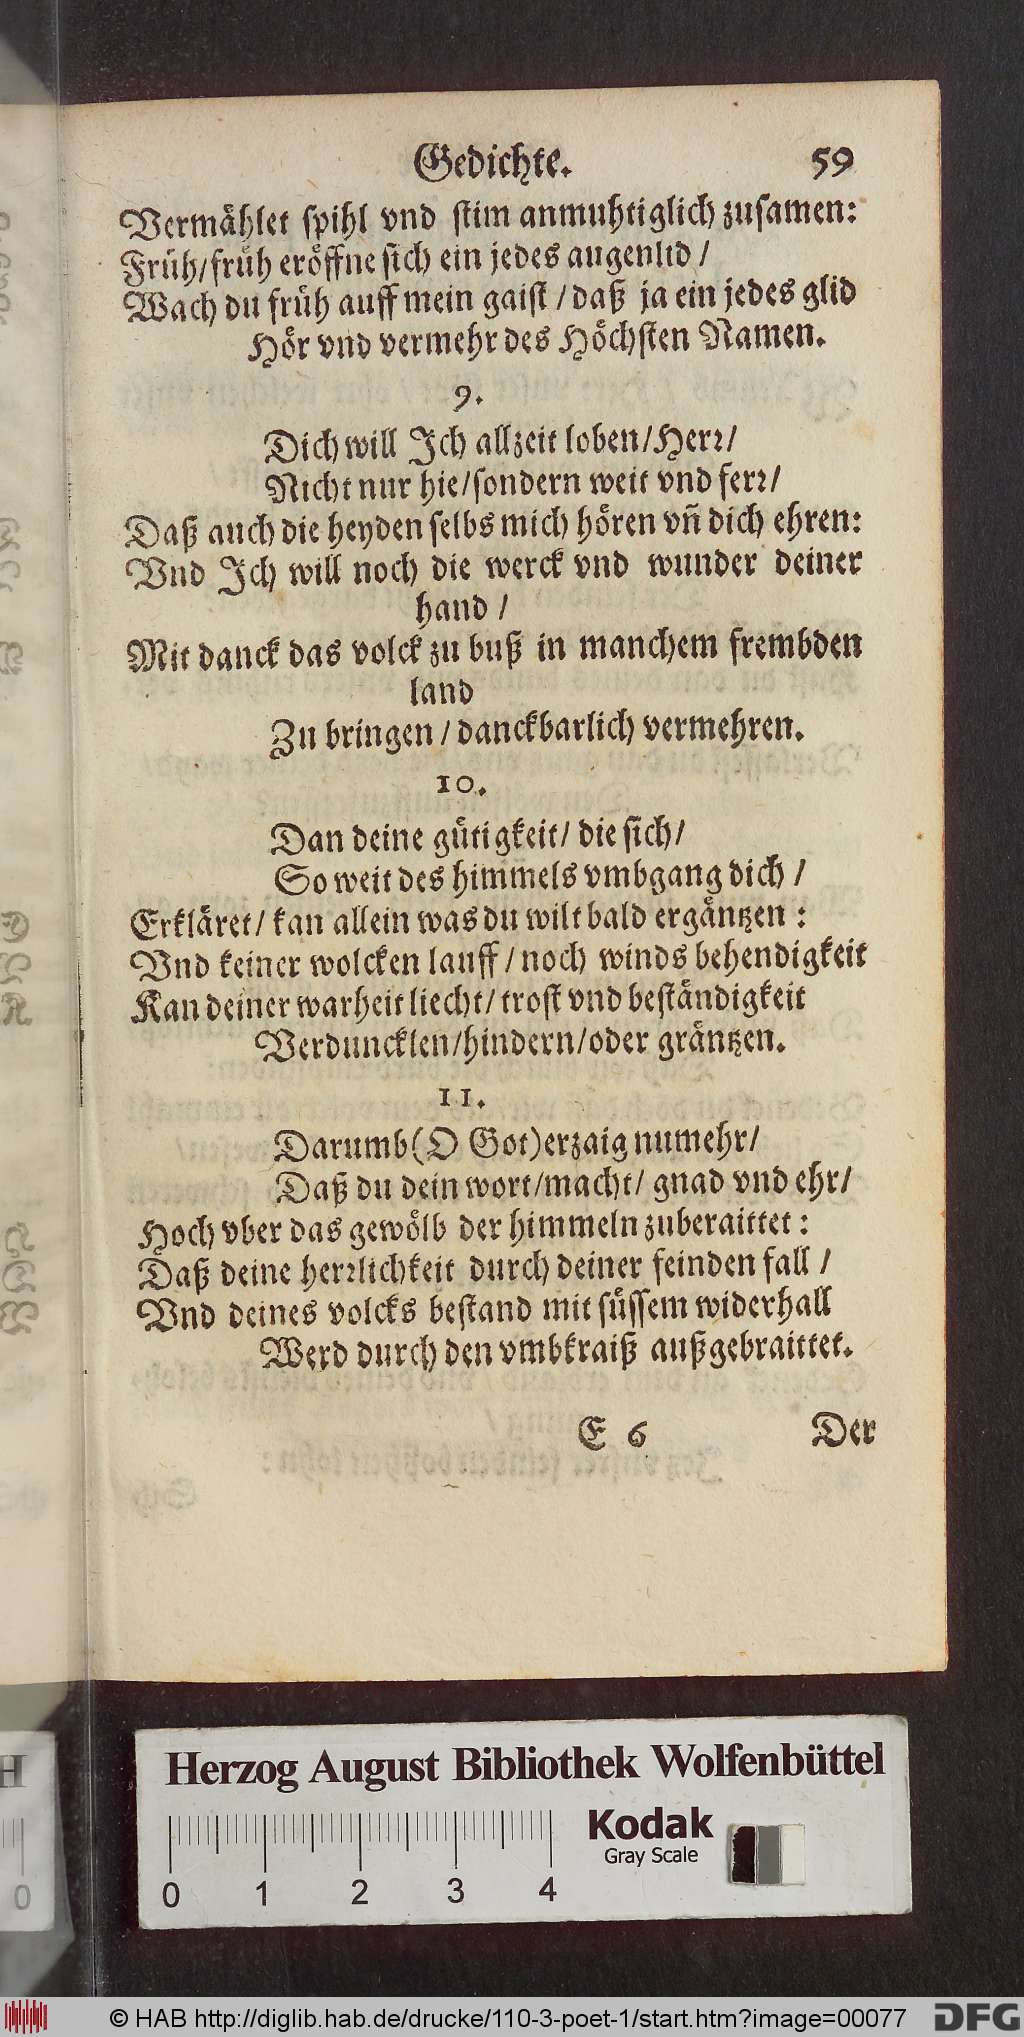 Gedichte. 59
Vermählet spihl vnd stim anmuhtiglich zusamen:
Früh/früh eröffne sich ein jedes augenlid /
Wach du früh auff mein gaist / daß ja ein jedes glid
Hör vnd vermehr des Höchsten Namen.
9.
Dich will Ich allzeit loben/Herr/
Nicht nur hie/sondern weit vnd ferr/
Daß auch die heyden selbs mich hören vñ dich ehren:
Vnd Ich will noch die werck vnd wunder deiner
hand /
Mit danck das volck zu buß in manchem frembden
land
Zu bringen / danckbarlich vermehren.
10.
Dan deine gütigkeit/ die sich/
So weit des himmels vmbgang dich /
Erkläret/ kan allein was du wilt bald ergäntzen :
Vnd keiner wolcken lauff / noch winds behendigkeit
Kan deiner warheit liecht/ trost vnd beständigkeit
Verduncklen/hindern/oder gräntzen.
11.
Darumb (O Got) erzaig numehr/
Daß du dein wort/macht/ gnad vnd ehr/
Hoch vber das gewölb der himmeln zuberaittet :
Daß deine herrlichkeit durch deiner feinden fall /
Vnd deines volcks bestand mit süssem widerhall
Werd durch den vmbkraiß außgebraittet.
E 6 Der
Herzog August Bibliothek Wolfenbüttel
Kodak
Gray Scale
0 1 2 3 4
H
0
© HAB http://diglib.hab.de/drucke/110-3-poet-1/start.htm?image=00077
DFG